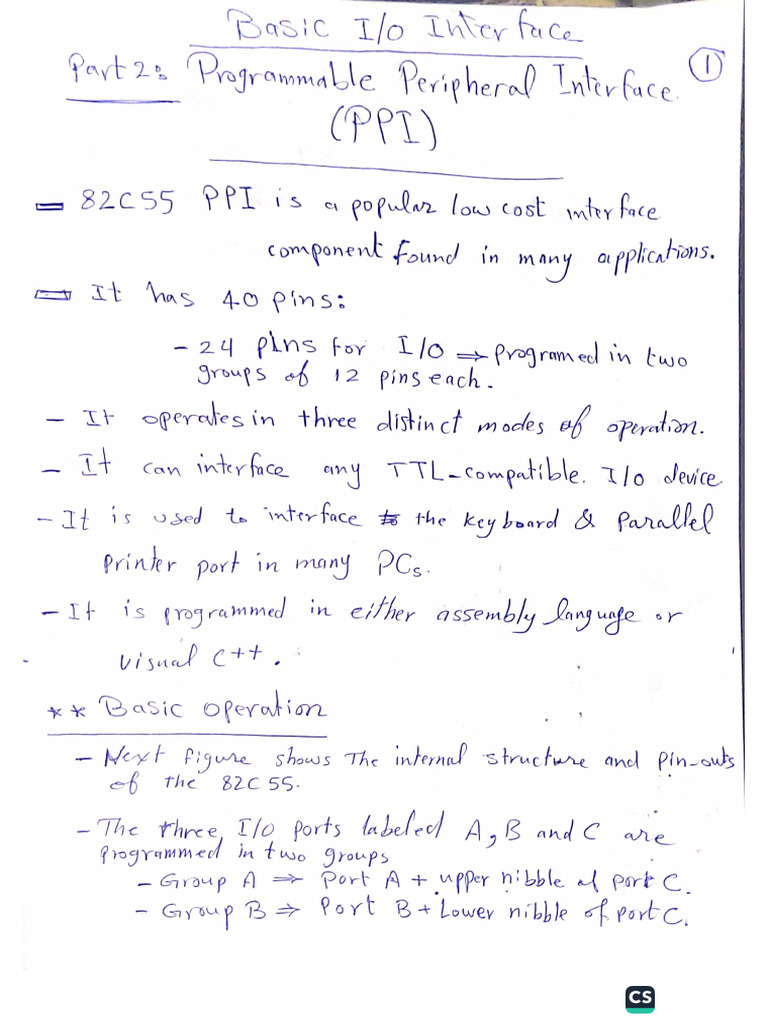 Basic I/O Interface
Part 2: Programmable Peripheral Interface ①
(PPI)
= 82C55 PPI is a popular low cost interface
component found in many applications.
= It has 40 pins:
- 24 pins for I/O ⇒ programed in two
groups of 12 pins each.
- It operates in three distinct modes of operation.
- It can interface any TTL-compatible. I/o device
- It is used to interface to the keyboard & Parallel
printer port in many PCs.
- It is programmed in either assembly language or
visual C++.
** Basic operation
- Next figure shows The internal structure and pin-outs
of the 82C55.
- The three I/O ports labeled A, B and C are
programmed in two groups
- Group A ⇒ Port A + upper nibble of port C.
- Group B ⇒ Port B + Lower nibble of port C.
CS